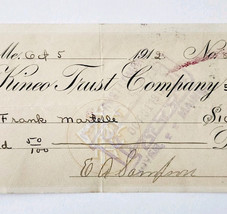 Me. Oct 5 1912 No.
Kineo Trust Company
Frank Martelle Si
d 50/100 D
E A Sampson